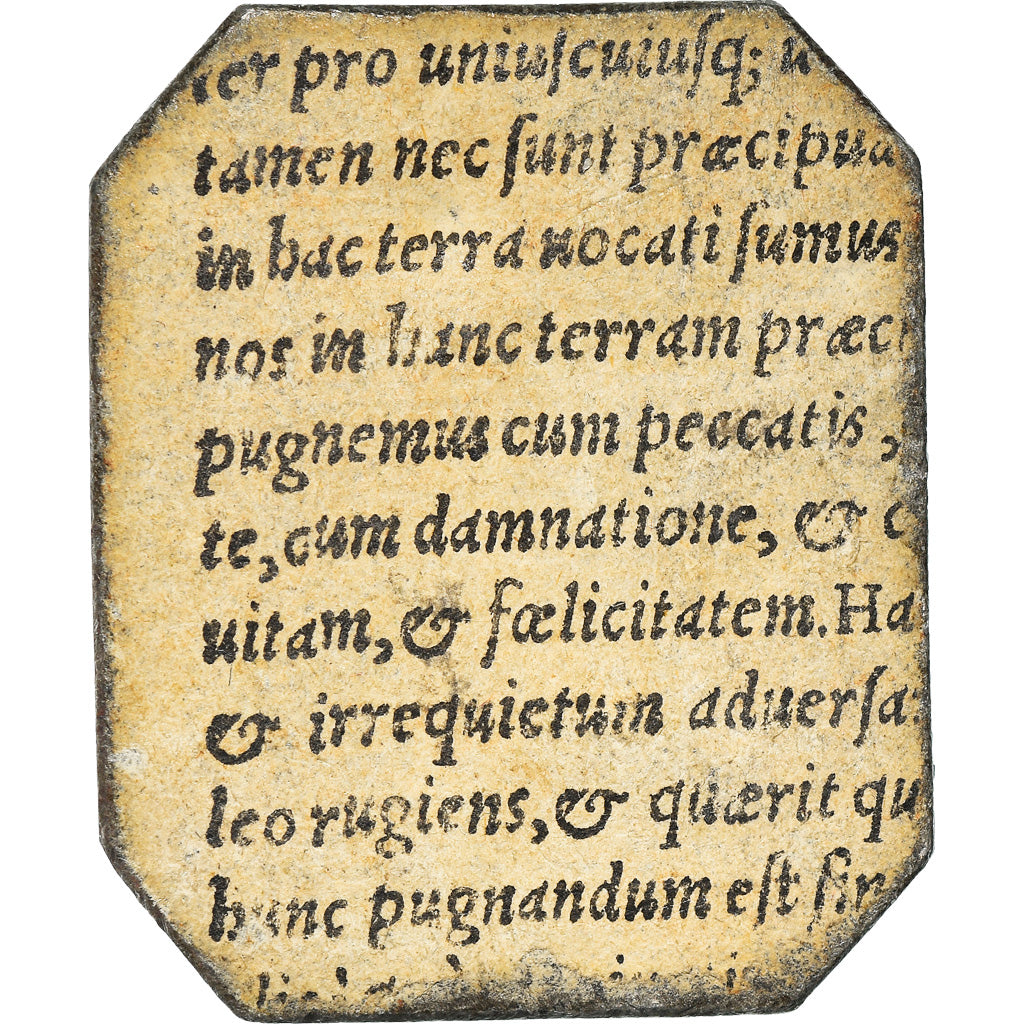 ter pro uniuſcuiuſq; u
tamen nec ſunt præcipua
in hac terra uocati ſumus
nos in hanc terram præci
pugnemus cum peccatis,
te, cum damnatione, & c
uitam, & fœlicitatem. Ha
& irrequietum aduerſa
leo rugiens, & quærit qu
hunc pugnandum eſt ſin